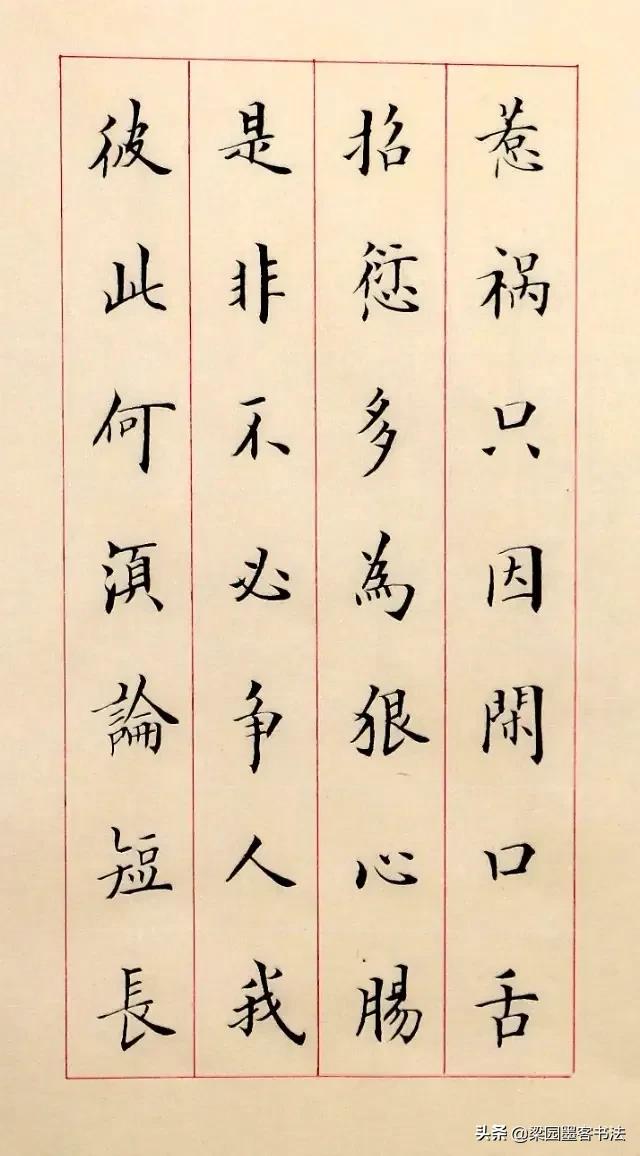 惹祸只因閑口舌
招愆多為狠心腸
是非不必争人我
彼此何須論短長
头条 @梁园墨客书法